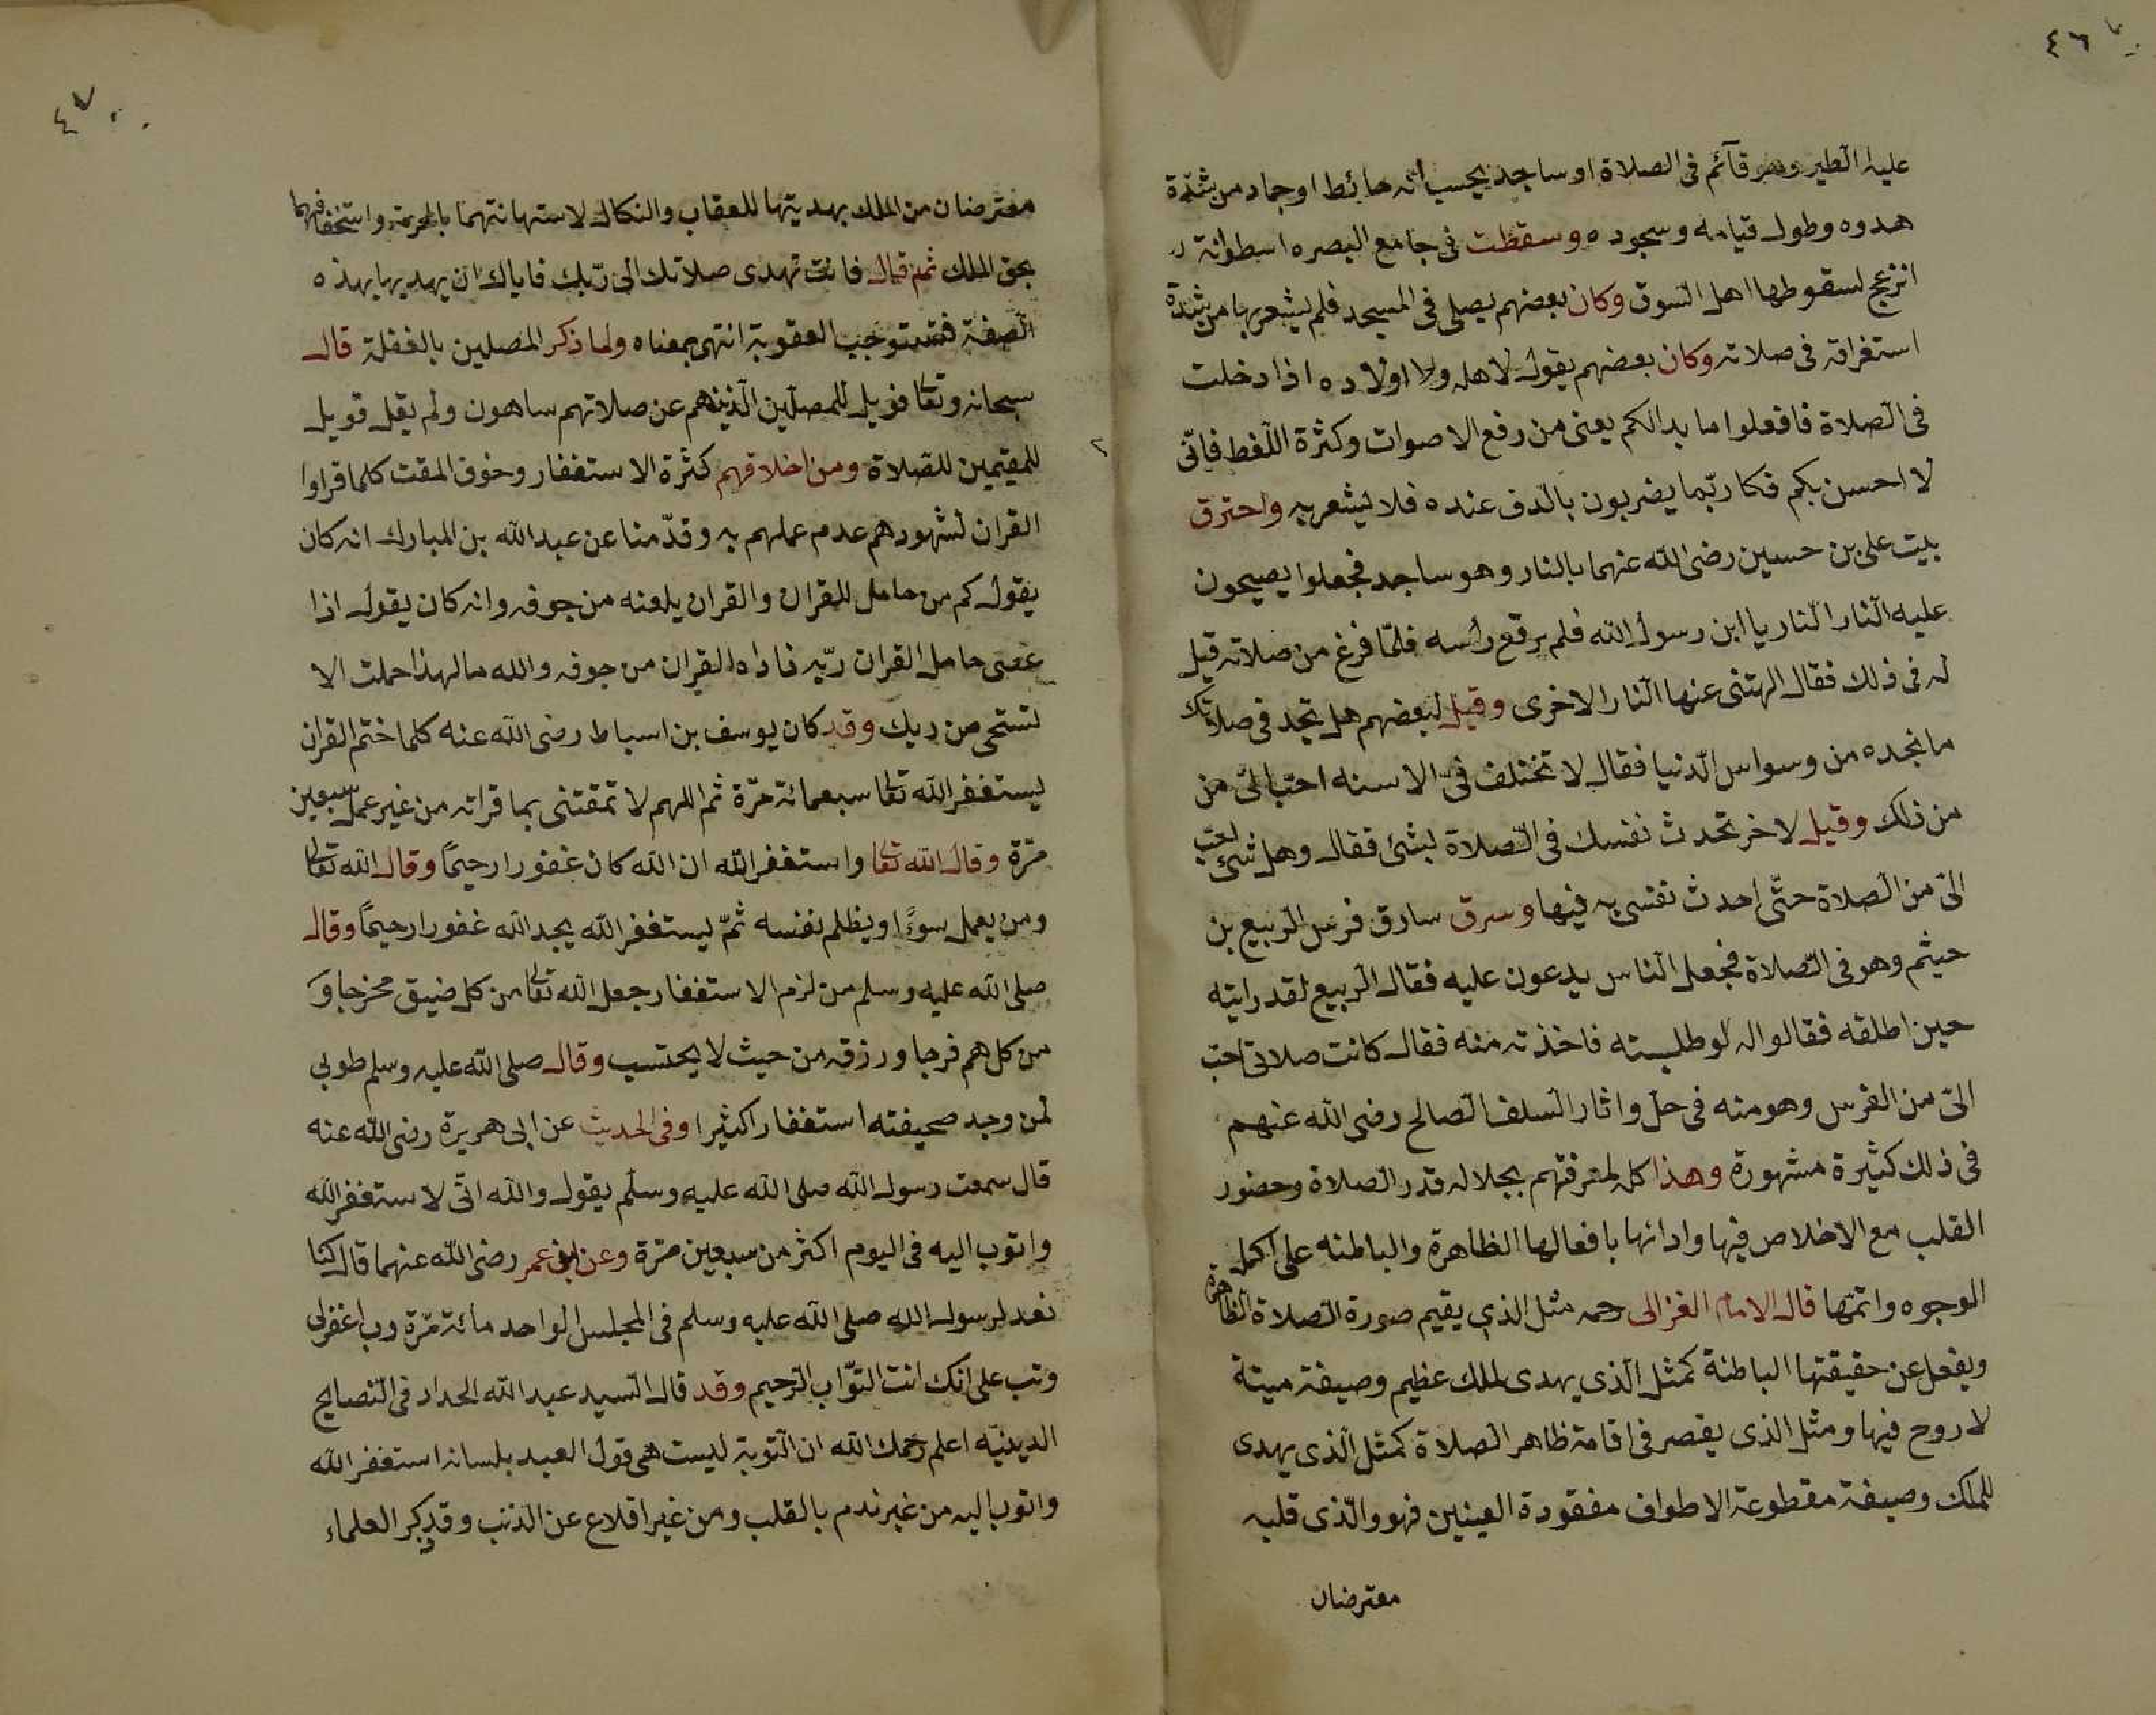 ٤٦
عليه الطير وهو قآئم فى الصلاة او ساجد يحسب انه حائط او جماد من شدّة
هدوه وطول قيامه وسجوده وسقطت فى جامع البصره اسطوانة
انزعج لسقوطها اهل السوق وكان بعضهم يصلى فى المسجد فلم يشعر بها من شدة
استغراقه فى صلاته وكان بعضهم يقول لاهله ولا اولاده اذا دخلت
فى الصلاة فافعلوا ما بدالكم يعنى من رفع الاصوات وكثرة اللّغط فانّى
لا احسن بكم فكا ربّما يضربون بالدف عنده فلا يشعر به واحترق
بيت على بن حسين رضى الله عنهما بالنار وهو ساجد فجعلوا يصيحون
عليه النار النار يا ابن رسول الله فلم يرفع رأسه فلمّا فرغ من صلاته قيل
له فى ذلك فقال الهتنى عنها النار الاخرى وقيل لبعضهم هل تجد فى صلاتك
ما نجده من وسواس الدّنيا فقال لا تختلف فىّ الاسنه احبّ الىّ من
من ذلك وقيل لاخر تحدث نفسك فى الصّلاة بشئ فقال وهل شئ احب
الىّ من الصلاة حتّى احدث نفسى به فيها وسرق سارق فرس الربيع بن
حيثم وهو فى الصّلاة فجعل الناس يدعون عليه فقال الربيع لقد رايته
حين اطلقه فقالوا له لو طلبته فاخذته منه فقال كانت صلاتى احبّ
الىّ من الفرس وهو منه فى حل واثار السلف الصالح رضى الله عنهم
فى ذلك كثيرة مشهورة وهذا كله لمعرفتهم بجلاله قدر الصلاة وحضور
القلب مع الاخلاص فيها وادائها بافعالها الظاهرة والباطنه على اكمل
الوجوه واتمّها قال الامام الغزالى رحمه مثل الذي يقيم صورة الصلاة الظاهرة
ويغفل عن حقيقتها الباطنة كمثل الّذى يهدى لملك عظيم وصيفة ميتة
لا روح فيها ومثل الذى يقصر فى اقامة ظاهر الصلاة كمثل الّذى يهدى
للملك وصيفة مقطوعة الاطواف مفقودة العينين فهو والّذى قلبه
معترضان
٤٧
معترضان من الملك بهديتها للعقاب والنكال لاستهانتهما بالحرمة واستخفافهما
بحق الملك ثم قال فانت تهدى صلاتك الى ربّك فاياك ان يهديها بهذه
الصفة فتستوجب العقوبة انتهى بمعناه ولما ذكر المصلين بالغفلة قال
سبحانه وتعا فويل للمصلّين الّذينهم عن صلاتهم ساهون ولم يقل فويل
للمقيمين للصلاة ومن اخلاقهم كثرة الاستغفار وخوف المقت كلما قراوا
القران لشهودهم عدم عملهم به وقدّمنا عن عبد الله بن المبارك انه كان
يقول كم من حامل للقران والقران يلعنه من جوفه وانه كان يقول اذا
عصى حامل القران ربّه ناداه القران من جوفه والله ما لهذا حملت الا
تستحى من ربك وقد كان يوسف بن اسباط رضى الله عنه كلما ختم القران
يستغفر الله تعا سبعمائة مرّة ثم اللهم لا تمقتنى بما قراته من غير عمل سبعين
مرّة وقال الله تعا واستغفر الله ان الله كان غفورا رحيمًا وقال الله تعا
ومن يعمل سوءًا او يظلم نفسه ثمّ يستغفر الله يجد الله غفورا رحيمًا وقال
صلى الله عليه وسلم من لزم الاستغفار جعل الله تعا من كل ضيق مخرجا و
من كل هم فرجا ورزقه من حيث لا يحتسب وقال صلى الله عليه وسلم طوبى
لمن وجد صحيفته استغفارا كثيرا وفى الحديث عن ابى هريرة رضى الله عنه
قال سمعت رسول الله صلى الله عليه وسلّم يقول والله انّى لاستغفر الله
واتوب اليه فى اليوم اكثر من سبعين مرّة وعن ابن عمر رضى الله عنهما قال كنا
نعد لرسول الله صلى الله عليه وسلم فى المجلس الواحد مائة مرّة رب اغفرلى
وتب على انك انت التوّاب الرحيم وقد قال السيد عبد الله الحداد فى النصايح
الدينيّه اعلم رحمك الله ان التوبة ليست هى قول العبد بلسانه استغفر الله
واتوب اليه من غير ندم بالقلب ومن غير اقلاع عن الذنب وقد ذكر العلماء